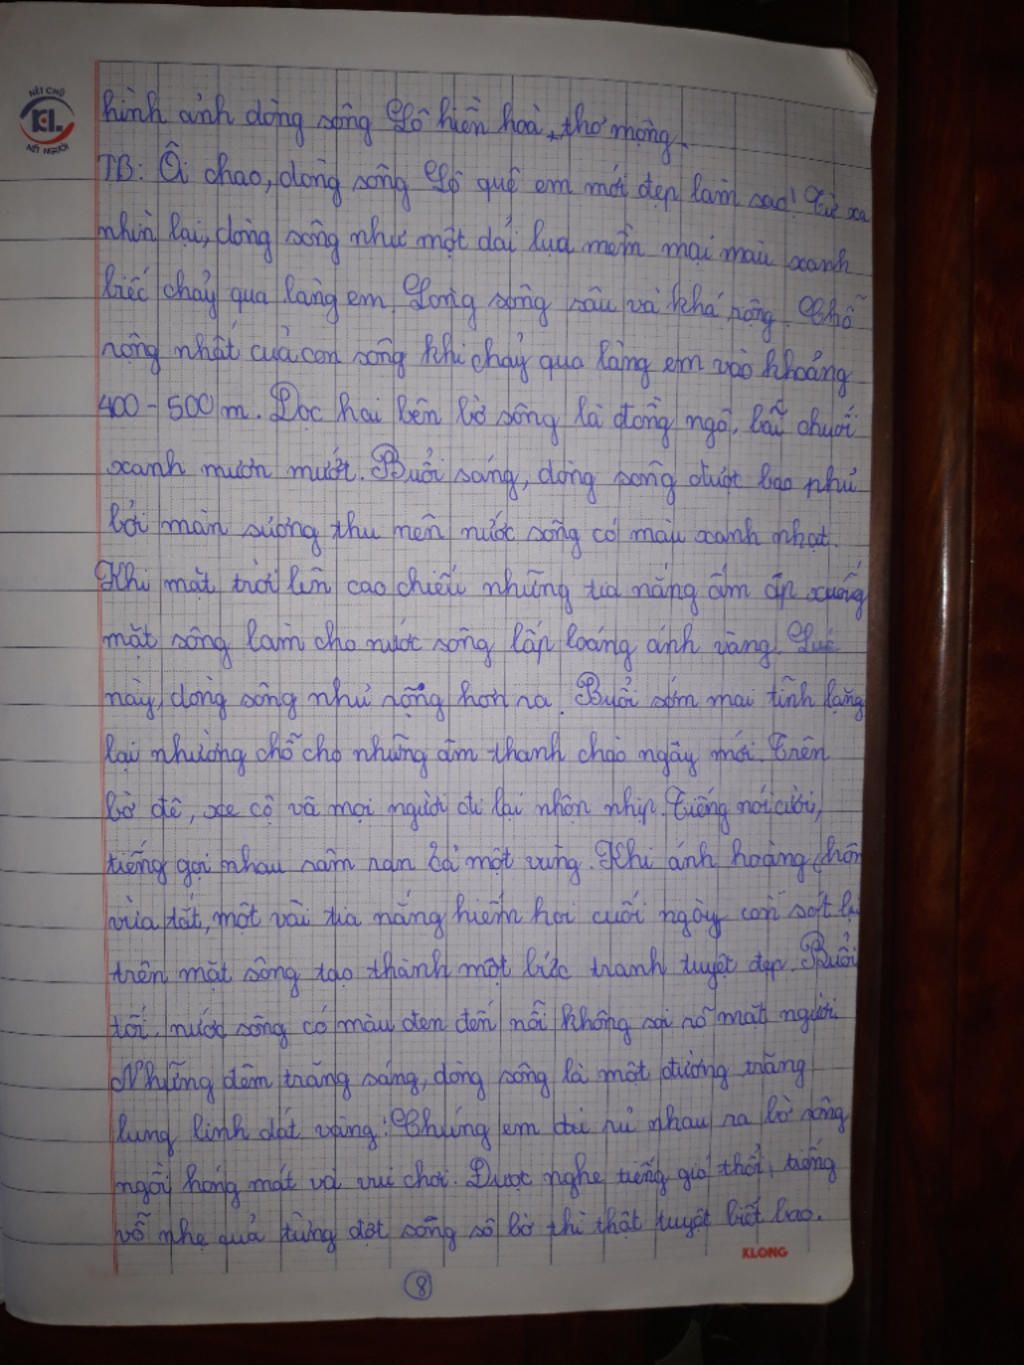 NÉT CHỮ
KL
NẾT NGƯỜI
hình ảnh dòng sông Lô hiền hoà, thơ mộng.
TB: Ôi chao, dòng sông Lô quê em mới đẹp làm sao! Từ xa
nhìn lại, dòng sông như một dải lụa mềm mại màu xanh
biếc chảy qua làng em. Lòng sông sâu và khá rộng. Chỗ
rộng nhất của con sông khi chảy qua làng em vào khoảng
400 - 500 m. Dọc hai bên bờ sông là đồng ngô, bãi chuối
xanh mươn mướt. Buổi sáng, dòng sông được bao phủ
bởi màn sương thu nên nước sông có màu xanh nhạt.
Khi mặt trời lên cao chiếu những tia nắng ấm áp xuống
mặt sông làm cho nước sông lấp loáng ánh vàng. Lúc
này, dòng sông như rộng hơn ra. Buổi sớm mai tĩnh lặng
lại nhường chỗ cho những âm thanh chào ngày mới. Trên
bờ đê, xe cộ và mọi người đi lại nhộn nhịp. Tiếng nói cười,
tiếng gọi nhau râm ran cả một vùng. Khi ánh hoàng hôn
vừa tắt, một vài tia nắng hiếm hoi cuối ngày còn sót lại
trên mặt sông tạo thành một bức tranh tuyệt đẹp. Buổi
tối, nước sông có màu đen đến nỗi không soi rõ mặt người.
Những đêm trăng sáng, dòng sông là một đường trăng
lung linh dát vàng. Chúng em rủ nhau ra bờ sông
ngồi hóng mát và vui chơi. Được nghe tiếng gió thổi, tiếng
vỗ nhẹ của từng đợt sóng xô bờ thì thật tuyệt biết bao.
KLONG
8